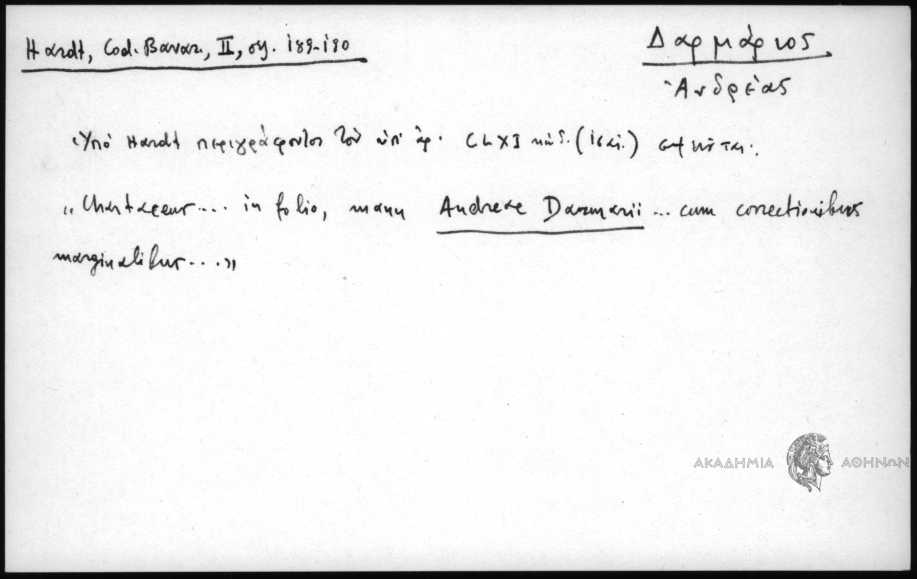 Hardt, Cod. Bavar., II, σγ. 189-190
Δαρμάριος
Ἀνδρέας
Ὑπό Hardt περιγράφοντος τὸν ὑπ' ἀρ. CLXI κώδ. (ις αἰ.) σημειοῦται:
„Chartaceus... in folio, manu Andreae Darmarii... cum correctionibus
marginalibus...„
ΑΚΑΔΗΜΙΑ ΑΘΗΝΩΝ